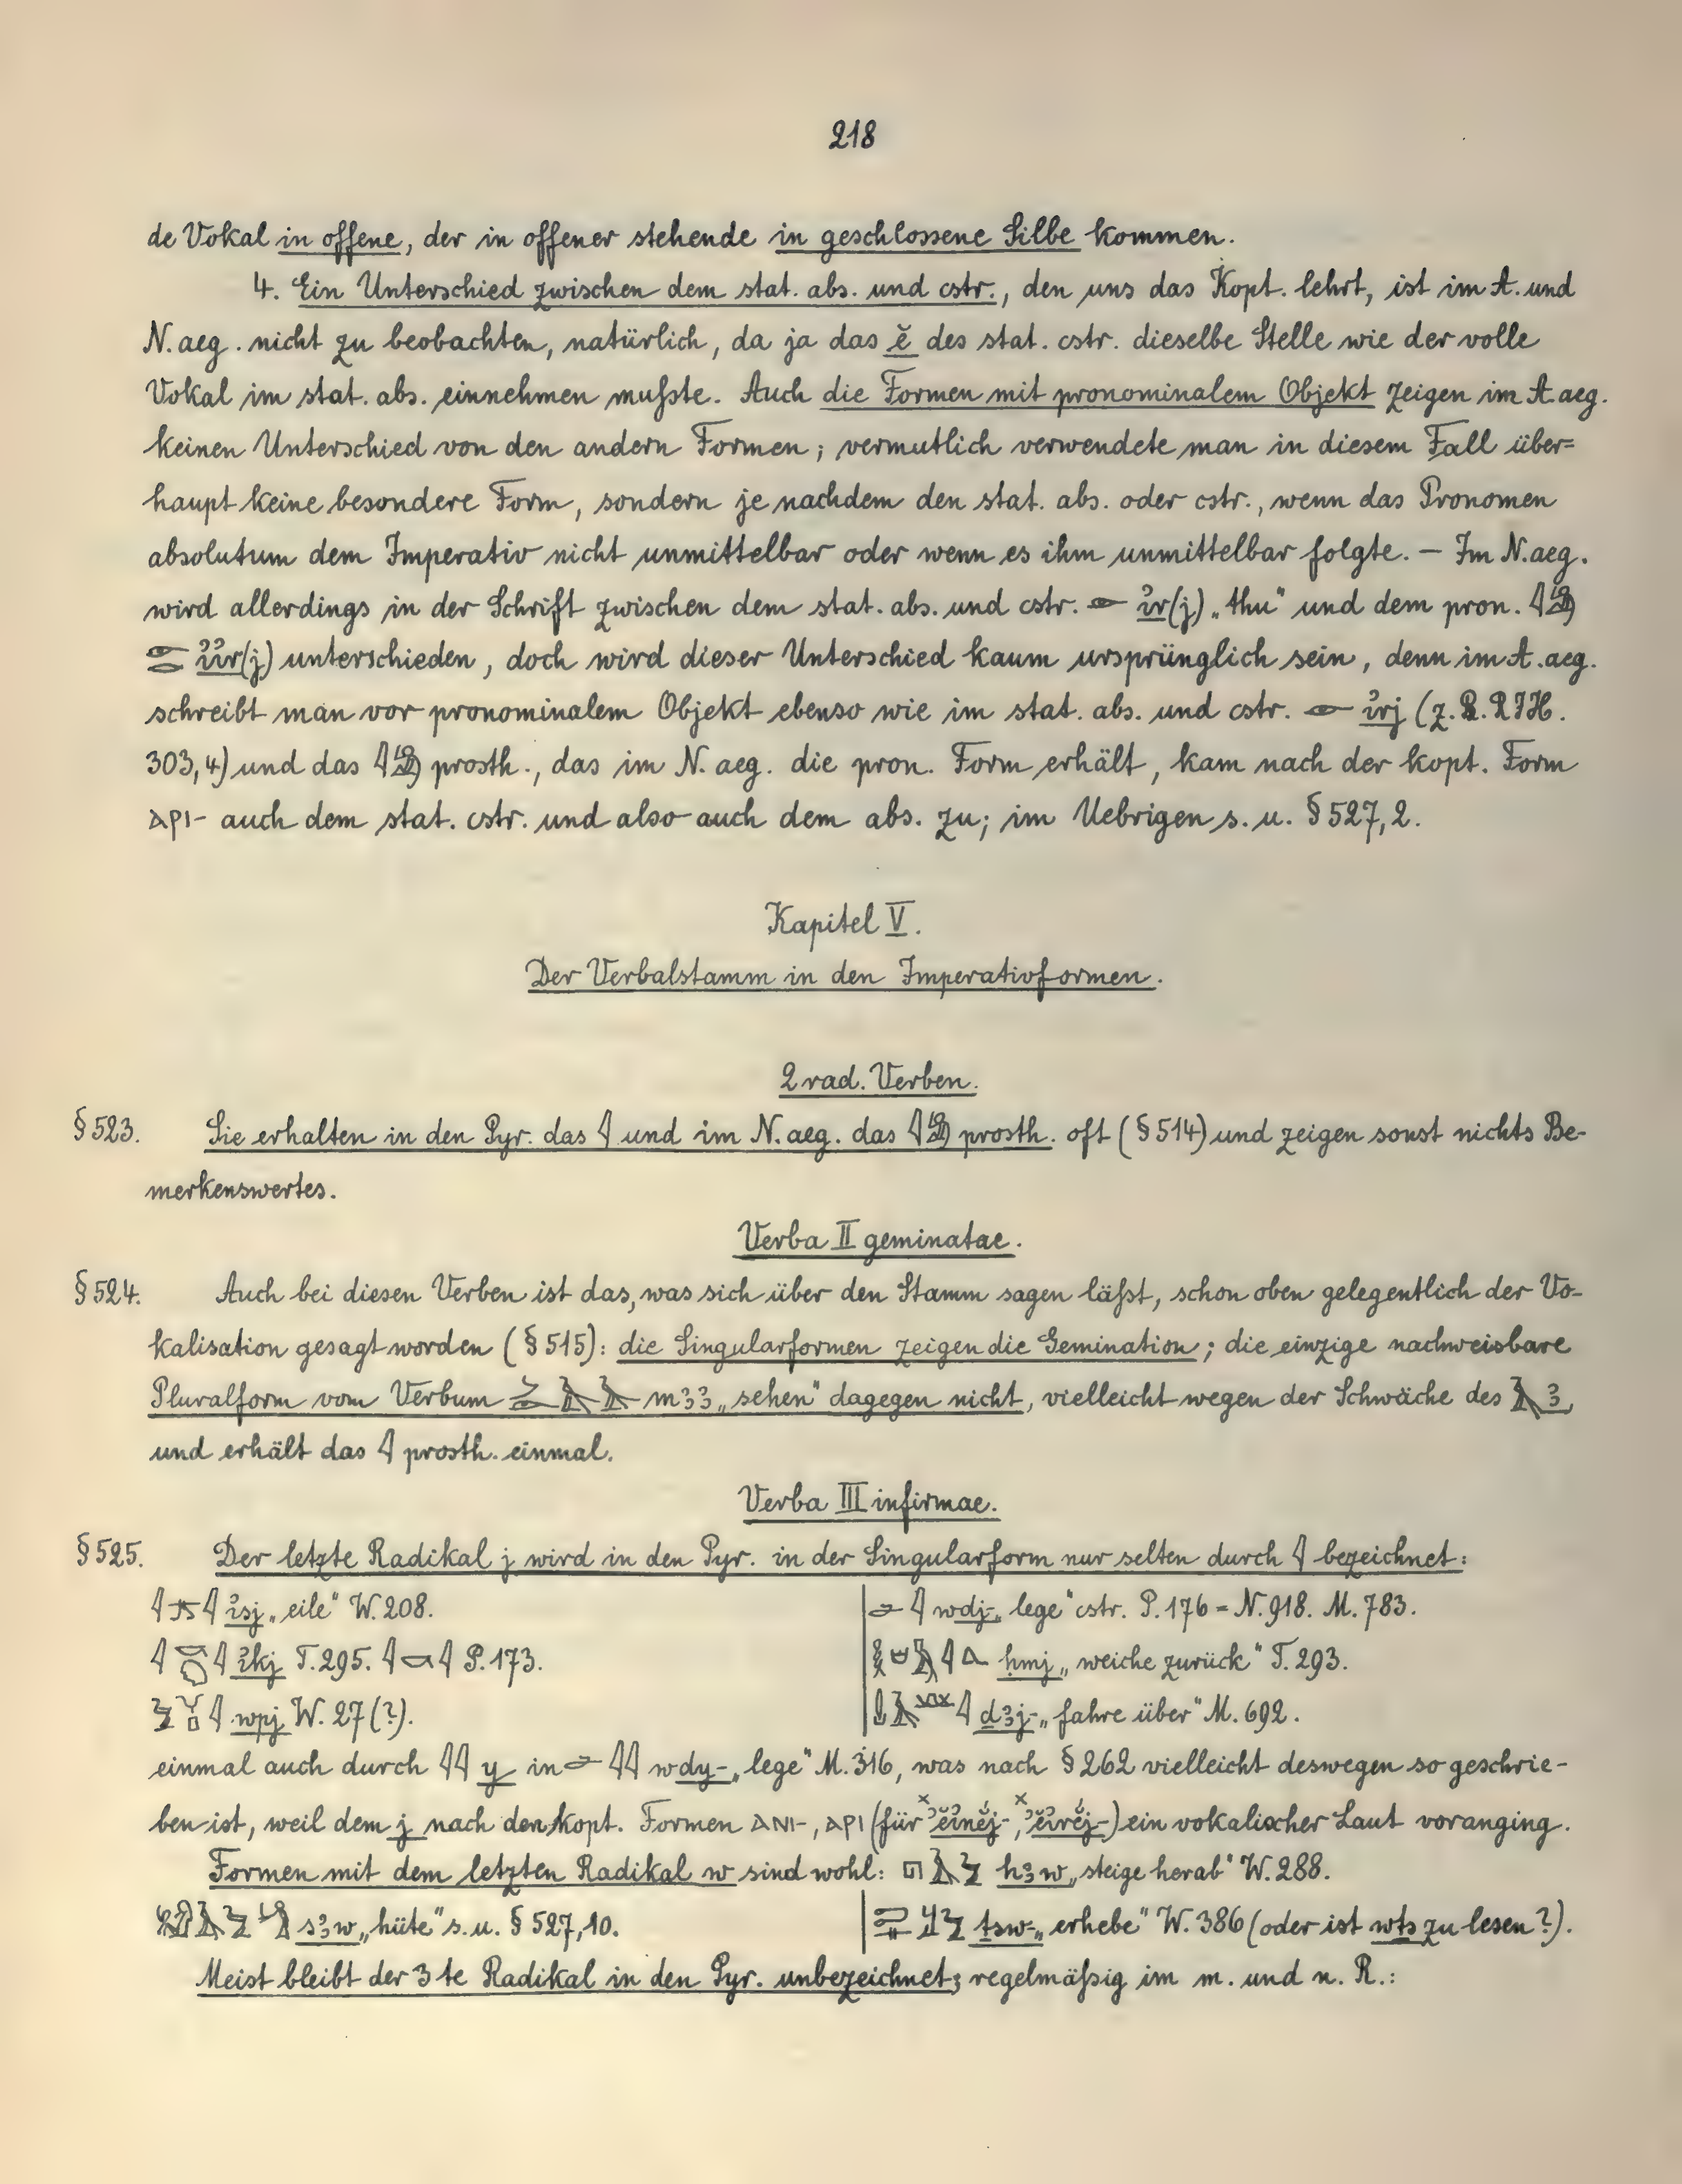 218
de Vokal in offene, der in offener stehende in geschlossene Silbe kommen.
4. Ein Unterschied zwischen dem stat. abs. und cstr., den uns das Kopt. lehrt, ist im A. und
N. aeg. nicht zu beobachten, natürlich, da ja das ĕ des stat. cstr. dieselbe Stelle wie der volle
Vokal im stat. abs. einnehmen mußte. Auch die Formen mit pronominalem Objekt zeigen im A. aeg.
keinen Unterschied von den andern Formen; vermutlich verwendete man in diesem Fall über=
haupt keine besondere Form, sondern je nachdem den stat. abs. oder cstr., wenn das Pronomen
absolutum dem Imperativ nicht unmittelbar oder wenn es ihm unmittelbar folgte. – Im N. aeg.
wird allerdings in der Schrift zwischen dem stat. abs. und cstr. 𓁹 ꞽr(j) „thu" und dem pron. 𓇋𓀁
𓁹𓂋 ꞽꞽr(j) unterschieden, doch wird dieser Unterschied kaum ursprünglich sein, denn im A. aeg.
schreibt man vor pronominalem Objekt ebenso wie im stat. abs. und cstr. 𓁹 ꞽrj (z. B. RIH.
303,4) und das 𓇋𓀁 prosth., das im N. aeg. die pron. Form erhält, kam nach der kopt. Form
ⲁⲣⲓ- auch dem stat. cstr. und also auch dem abs. zu; im Uebrigen s. u. § 527,2.
Kapitel V.
Der Verbalstamm in den Imperativformen.
2 rad. Verben.
§ 523. Sie erhalten in den Pyr. das 𓇋 und im N. aeg. das 𓇋𓀁 prosth. oft (§ 514) und zeigen sonst nichts Be-
merkenswertes.
Verba II geminatae.
§ 524. Auch bei diesen Verben ist das, was sich über den Stamm sagen läßt, schon oben gelegentlich der Vo-
kalisation gesagt worden (§ 515): die Singularformen zeigen die Gemination; die einzige nachweisbare
Pluralform vom Verbum 𓌳𓄿𓄿 mꜣꜣ „sehen" dagegen nicht, vielleicht wegen der Schwäche des 𓄿 ꜣ,
und erhält das 𓇋 prosth. einmal.
Verba III infirmae.
§ 525. Der letzte Radikal j wird in den Pyr. in der Singularform nur selten durch 𓇋 bezeichnet:
𓇋𓊃𓇋 ꞽsj „eile" W. 208.
𓇋 𓇋 ꞽkj T. 295. 𓇋𓎡𓇋 P. 173.
𓅱𓄋𓊪𓇋 wpj W. 27 (?).
𓇋 wdj- „lege" cstr. P. 176 = N. 918. M. 783.
𓎛𓅓𓇋𓂻 ḥmj „weiche zurück" T. 293.
𓍑𓄿𓇋 ḏꜣj- „fahre über" M. 692.
einmal auch durch 𓇋𓇋 y in 𓇋𓇋 wdy- „lege" M. 316, was nach § 262 vielleicht deswegen so geschrie-
ben ist, weil dem j nach den kopt. Formen ⲁⲛⲓ-, ⲁⲣⲓ (für ˣʾĕꞽnĕj-, ˣʾĕꞽrĕj-) ein vokalischer Laut voranging.
Formen mit dem letzten Radikal w sind wohl: 𓉔𓄿𓅱 hꜣw „steige herab" W. 288.
sꜣw „hüte" s. u. § 527,10.
ṯsw- „erhebe" W. 386 (oder ist wṯs zu lesen?).
Meist bleibt der 3te Radikal in den Pyr. unbezeichnet; regelmäßig im m. und n. R.: